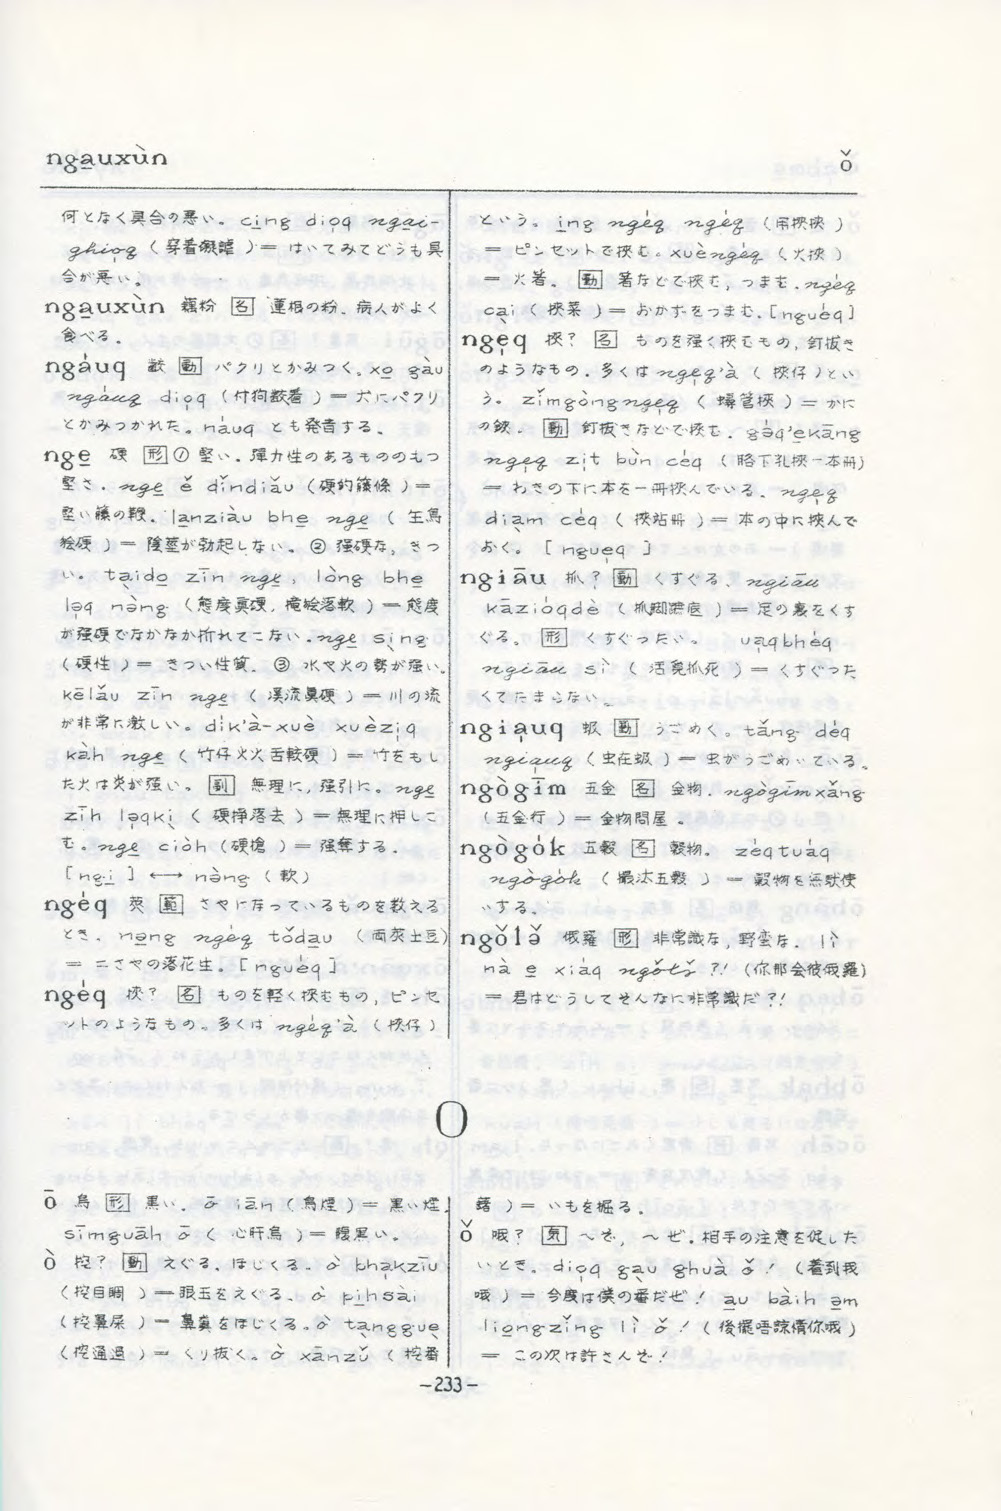 ngauxùn
ǒ
何となく具合の悪い。cing dioq ngai-
ghiog (穿着礙謔)= はいてみてどうも具
合が悪い。
ngauxùn 藕粉 [名] 蓮根の粉、病人がよく
食べる。
ngauq 齩 [動] パクリとかみつく。xo gàu
ngauq dioq (付狗齩着)= 犬にパクリ
とかみつかれた。nauq とも発音する。
nge 硬 [形] ① 堅い。弾力性のあるもののもつ
堅さ。nge ě dindiǎu (硬的籐條)=
堅い籐の鞭。lanziàu bhe nge (生鳥
𣍐硬)= 陰茎が勃起しない。② 強硬な, きつ
い。taido zīn nge lòng bhe
ləq nəng (態度真硬, 𣍐落軟)= 態度
が強硬でなかなか折れてこない。nge sìng
(硬性)= きつい性質。③ 水や火の勢が強い。
kēlǎu zīn nge (渓流真硬)= 川の流
が非常に激しい。dik'à-xuè xuèziq
kàh nge (竹仔火火舌較硬)= 竹をもし
た火は炎が強い。[副] 無理に, 強引に。nge
zīh ləqki (硬掙落去)= 無理に押しこ
む。nge ciòh (硬搶)= 強奪する。
[ngi] ⟷ nèng (軟)
ngėq 莢 [範] さやになっているものを数える
とき。nəng ngėq tǒdau (両莢土豆)
= 二さやの落花生。[nguėq]
ngėq 挾? [名] ものを軽く挾むもの, ピンセ
ットのようなもの。多くは ngėq'à (挾仔)
という。ing ngėq ngėq (用挾挾)
= ピンセットで挾む。xuèngėq (火挾)
= 火箸。[動] 箸などで挾む, つまむ。ngėq
cai (挾菜)= おかずをつまむ。[nguėq]
ngeq 挾? [名] ものを強く挾むもの, 釘抜き
のようなもの。多くは ngeq'à (挾仔)とい
う。zimgòngngeq (蟳管挾)= かに
の鋏。[動] 釘抜きなどで挾む。gəq'ekāng
ngeq zit bùn ceq (胳下孔挾一本冊)
= わきの下に本を一冊挾んでいる。ngeq
diam ceq (挾站冊)= 本の中に挾んで
おく。[ngueq]
ngiāu 抓? [動] くすぐる。ngiāu
kāzioqdè (抓脚蹠底)= 足の裏をくす
ぐる。[形] くすぐったい。uaqbheq
ngiāu sì (活要抓死)= くすぐった
くてたまらない。
ngiauq 蚴 [動] うごめく。tǎng deq
ngiauq (虫在蚴)= 虫がうごめいている。
ngògīm 五金 [名] 金物。ngògīmxǎng
(五金行)= 金物問屋。
ngògok 五穀 [名] 穀物。zeqtuaq
ngògok (撮汰五穀)= 穀物を無駄使
いする。
ngǒlǒ 俄羅 [形] 非常識な, 野蛮な。lì
nà e xiaq ngǒlǒ ?! (你那会彼俄羅)
= 君はどうしてそんなに非常識だ?!
O
ō 烏 [形] 黒い。ō iān (烏煙)= 黒い煙。
simguāh ō (心肝烏)= 腹黒い。
ò 挖? [動] えぐる, ほじくる。ò bhakziū
(挖目睭)= 眼玉をえぐる。ò pihsai
(挖鼻屎)= 鼻糞をほじくる。ò tanggue
(挖通過)= くり抜く。ò xānzǔ (挖番
藷)= いもを掘る。
ǒ 哦? [気] 〜ぞ, 〜ぜ。相手の注意を促した
いとき。dioq gau ghuà ǒ! (着到我
哦)= 今度は僕の番だぜ! au bàih əm
liongzing lì ǒ! (後擺唔諒情你哦)
= この次は許さんぞ!
-233-